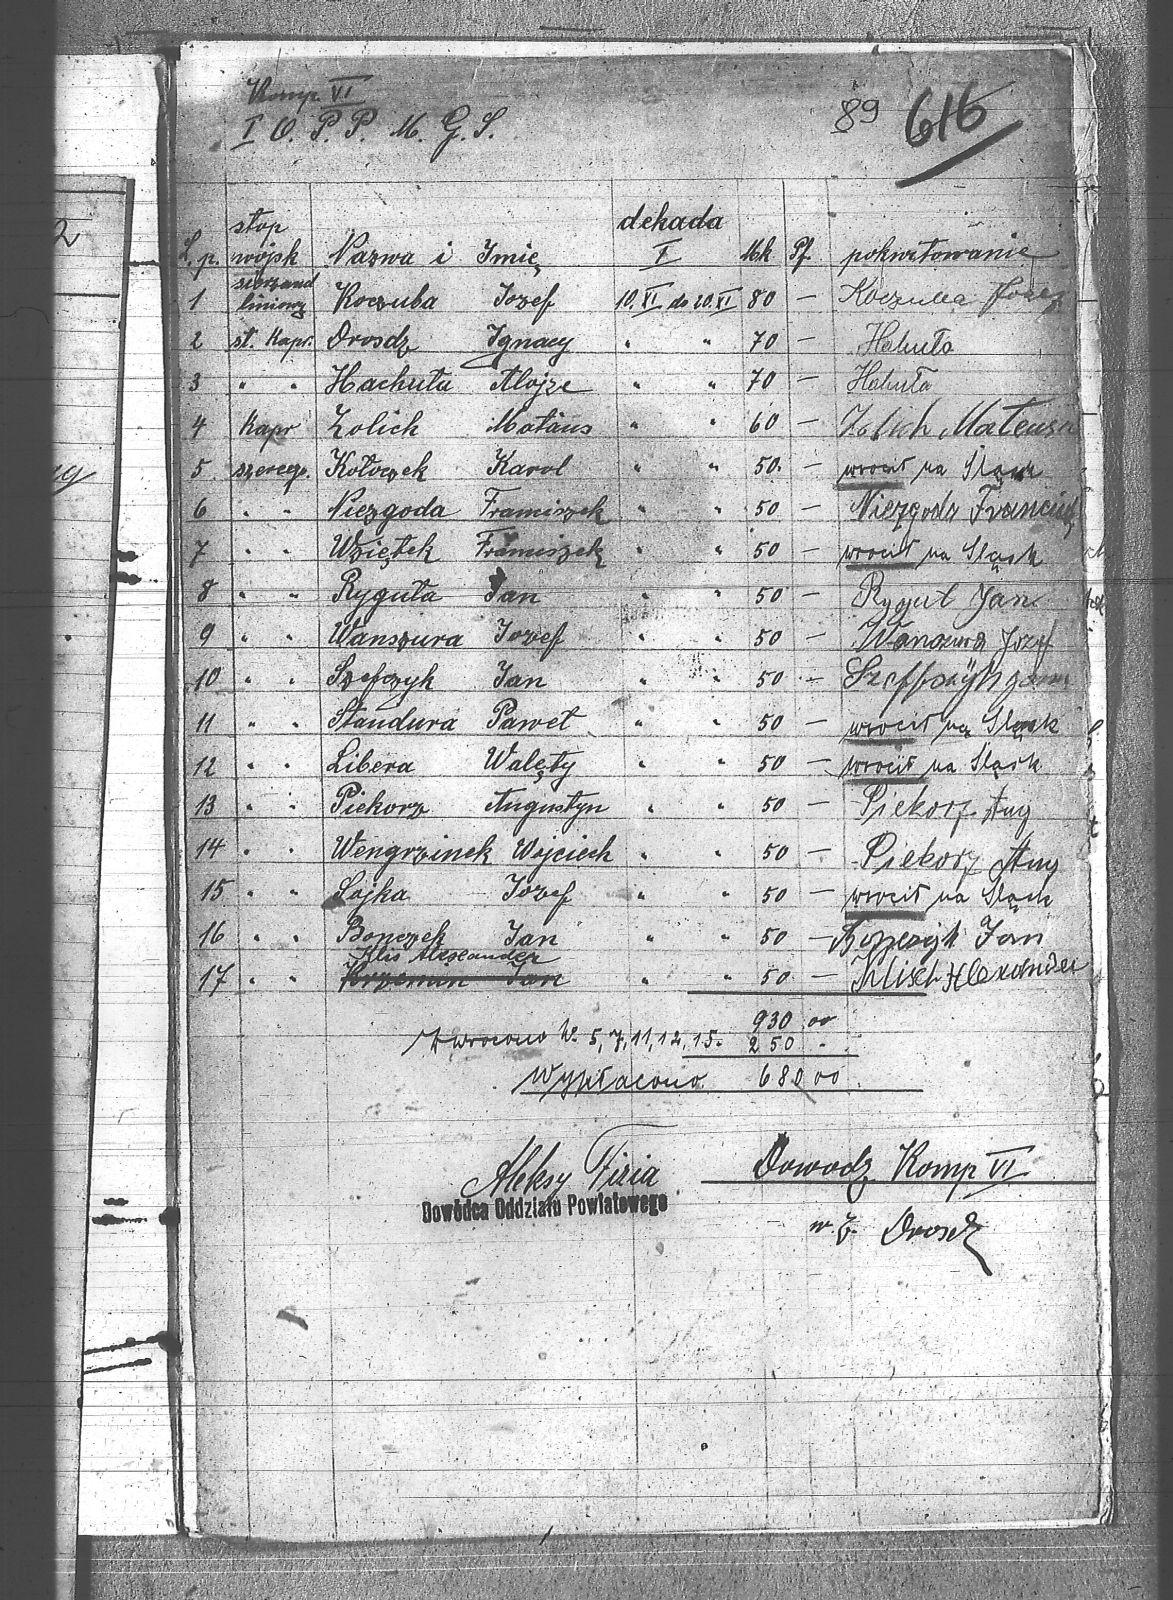 Komp. VI
I O. P. P. M. G. S.
89 616
L.p. stop wojsk Nazwa i Imię dekada I Mk Pf. pokwitowanie
1 sierzand liniowy Koczuba Jozef 10.XI. do 20.XI 80 — Koczuba Jozef
2 st. Kapr. Drosdz Ignacy " " 70 — Hahuła
3 " " Hachuła Alojze " " 70 — Hahuła
4 Kapr Zolich Matäus " " 60 — Zolich Mateusz
5. szereg. Kołoczek Karol " " 50. — wrocił na Sląsk
6 " " Niezgoda Framiszek " " 50 — Niezgoda Franciszek
7 " " Wziętek Framiszek " " 50 — wrocił na Sląsk
8 " " Ryguła Jan " " 50 — Rygul Jan
9 " " Wanszura Jozef " " 50 — Wanzura Jozef
10 " " Szefczyk Jan " " 50 — Szeffczyk Jan
11 " " Standura Paweł " " 50 — wrocił na Sląsk
12 " " Libera Walęty " " 50 — wrocił na Sląsk
13 " " Piekorz Augustyn " " 50 — Piekorz Aug
14 " " Wengrzinek Wojciech " " 50 — Piekorz Aug
15 " " Sojka Jozef " " 50 — wrocił na Sląsk
16 " " Bonczek Jan " " 50 — Jan
Klis Alexander
17 " " Krzemin Jan " " 50 — Klisch Alexander
930 00
Zwrocono N. 5, 7, 11, 12, 15. 250 "
Wypłacono. 680 00
Aleksy Fizia
Dowódca Oddziału Powiatowego
Dowodz Komp VI
w. z. Drosdz